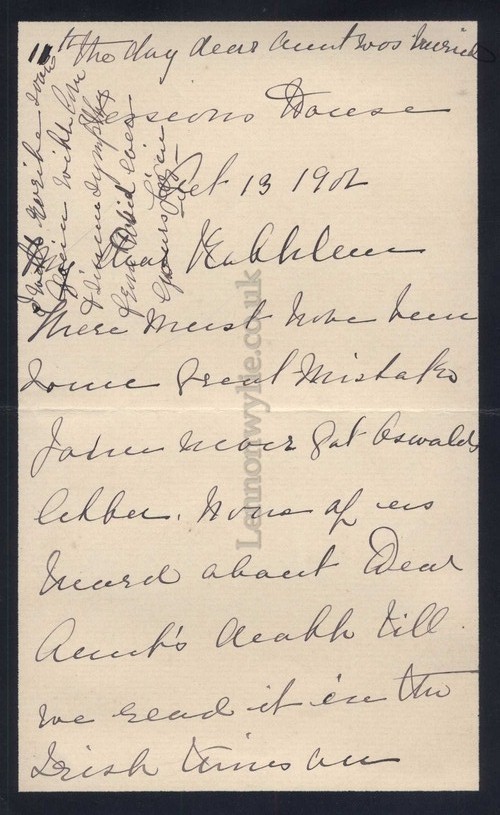 11th the day dear Aunt was buried
Sessions House
Oct 13 1902
My dear Kathleen
There must have been
some great mistake
John never got Oswalds
letter. None of us
heard about Dear
Aunt's death till
we read it in the
Irish times on
I will write soon
again with love
& sympathy
from David ever
yours
Lennonwylie.co.uk